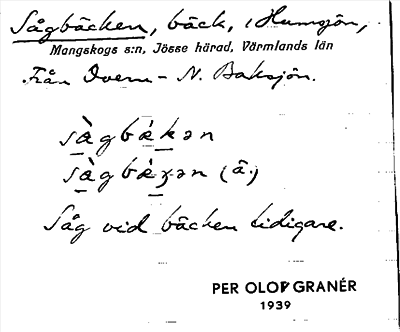 Sågbäcken, bäck, i Humsjön,
Mangskogs s:n, Jösse härad, Värmlands län
Från Overn – N. Baksjön.
sàgbækən
sàgbæʒən (ä.)
Såg vid bäcken tidigare.
PER OLOF GRANÉR
1939